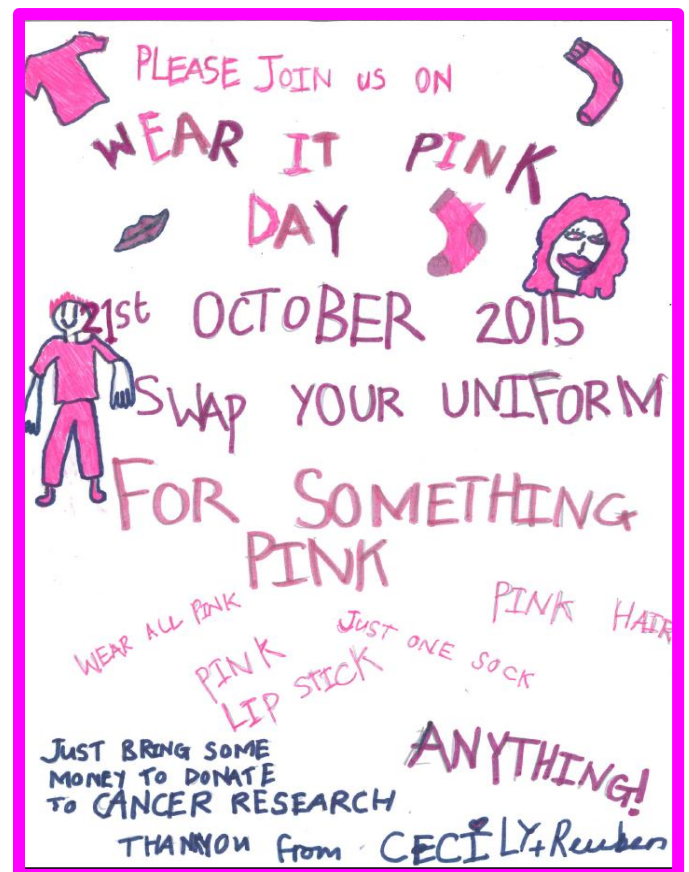 PLEASE JOIN US ON
WEAR IT PINK
DAY
21st OCTOBER 2015
SWAP YOUR UNIFORM
FOR SOMETHING
PINK
WEAR ALL PINK
PINK
LIP STICK
JUST ONE SOCK
PINK HAIR
ANYTHING!
JUST BRING SOME
MONEY TO DONATE
TO CANCER RESEARCH
THANKYOU from CECILY + Reuben